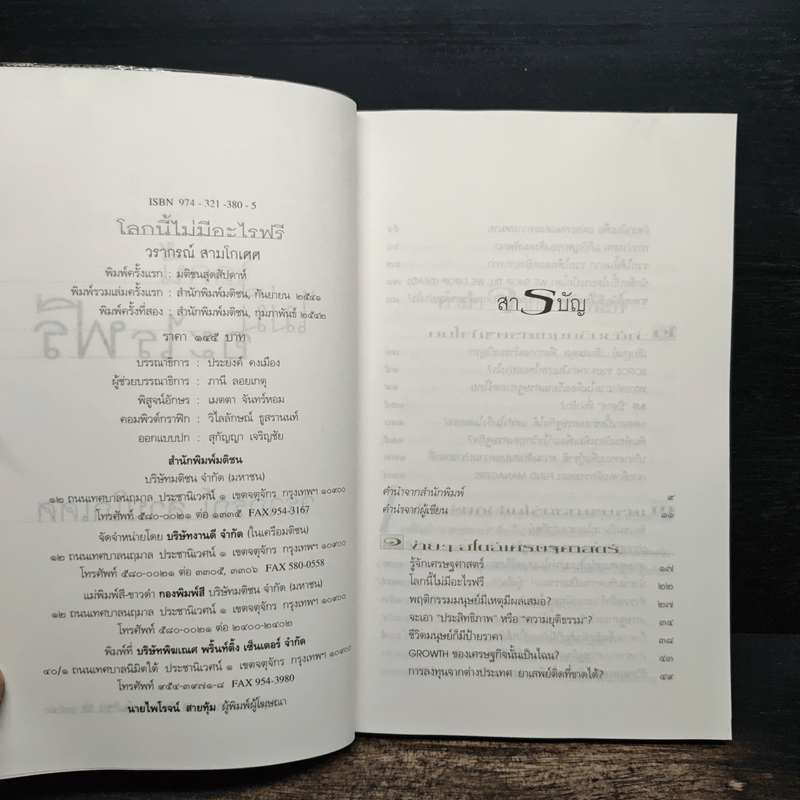 ISBN 974 - 321 - 380 - 5
โลกนี้ไม่มีอะไรฟรี
วรากรณ์ สามโกเศศ
พิมพ์ครั้งแรก : มติชนสุดสัปดาห์
พิมพ์รวมเล่มครั้งแรก : สำนักพิมพ์มติชน, กันยายน ๒๕๔๑
พิมพ์ครั้งที่สอง : สำนักพิมพ์มติชน, กุมภาพันธ์ ๒๕๔๒
ราคา ๑๔๕ บาท
บรรณาธิการ : ประยงค์ คงเมือง
ผู้ช่วยบรรณาธิการ : ภานี ลอยเกตุ
พิสูจน์อักษร : เมตตา จันทร์หอม
คอมพิวต์กราฟิก : วิไลลักษณ์ ธูสรานนท์
ออกแบบปก : สุกัญญา เจริญชัย
สำนักพิมพ์มติชน
บริษัทมติชน จำกัด (มหาชน)
๑๒ ถนนเทศบาลนฤมาล ประชานิเวศน์ ๑ เขตจตุจักร กรุงเทพฯ ๑๐๙๐๐
โทรศัพท์ ๕๘๐-๐๐๒๑ ต่อ ๑๓๓๕ FAX 954-3167
จัดจำหน่ายโดย บริษัทงานดี จำกัด (ในเครือมติชน)
๑๒ ถนนเทศบาลนฤมาล ประชานิเวศน์ ๑ เขตจตุจักร กรุงเทพฯ ๑๐๙๐๐
โทรศัพท์ ๕๘๐-๐๐๒๑ ต่อ ๓๓๐๕, ๓๓๐๖ FAX 580-0558
แม่พิมพ์สี-ขาวดำ กองพิมพ์สี บริษัทมติชน จำกัด (มหาชน)
๑๒ ถนนเทศบาลนฤมาล ประชานิเวศน์ ๑ เขตจตุจักร กรุงเทพฯ ๑๐๙๐๐
โทรศัพท์ ๕๘๐-๐๐๒๑ ต่อ ๒๔๐๐-๒๔๐๒
พิมพ์ที่ บริษัทพิฆเณศ พริ้นท์ติ้ง เซ็นเตอร์ จำกัด
๔๐/๑ ถนนเทศบาลนิมิตใต้ ประชานิเวศน์ ๑ เขตจตุจักร กรุงเทพฯ ๑๐๙๐๐
โทรศัพท์ ๙๕๔-๓๙๗๑-๘ FAX 954-3980
นายไพโรจน์ สายทุ้ม ผู้พิมพ์ผู้โฆษณา
สารบัญ
คำนำจากสำนักพิมพ์ ๙
คำนำจากผู้เขียน ๑๑
รู้จักเศรษฐศาสตร์ ๑๗
โลกนี้ไม่มีอะไรฟรี ๒๒
พฤติกรรมมนุษย์มีเหตุมีผลเสมอ? ๒๗
จะเอา "ประสิทธิภาพ" หรือ "ความยุติธรรม"? ๓๔
ชีวิตมนุษย์ก็มีป้ายราคา ๓๘
GROWTH ของเศรษฐกิจนั้นเป็นไฉน? ๔๓
การลงทุนจากต่างประเทศ ยาเสพย์ติดที่ขาดได้? ๔๙